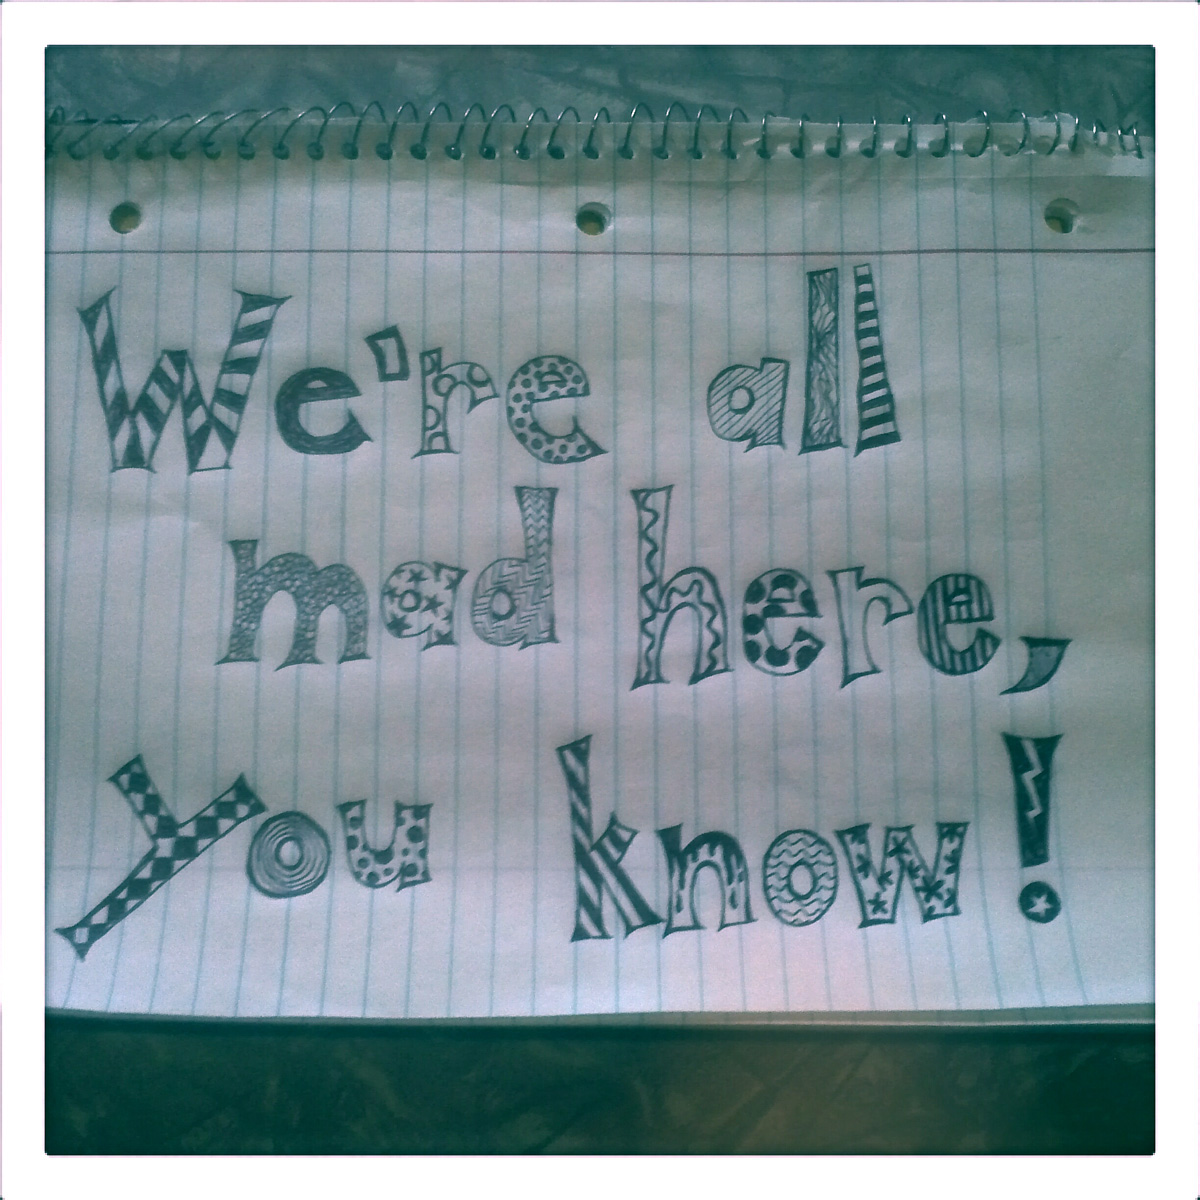 We're all
mad here,
you know!